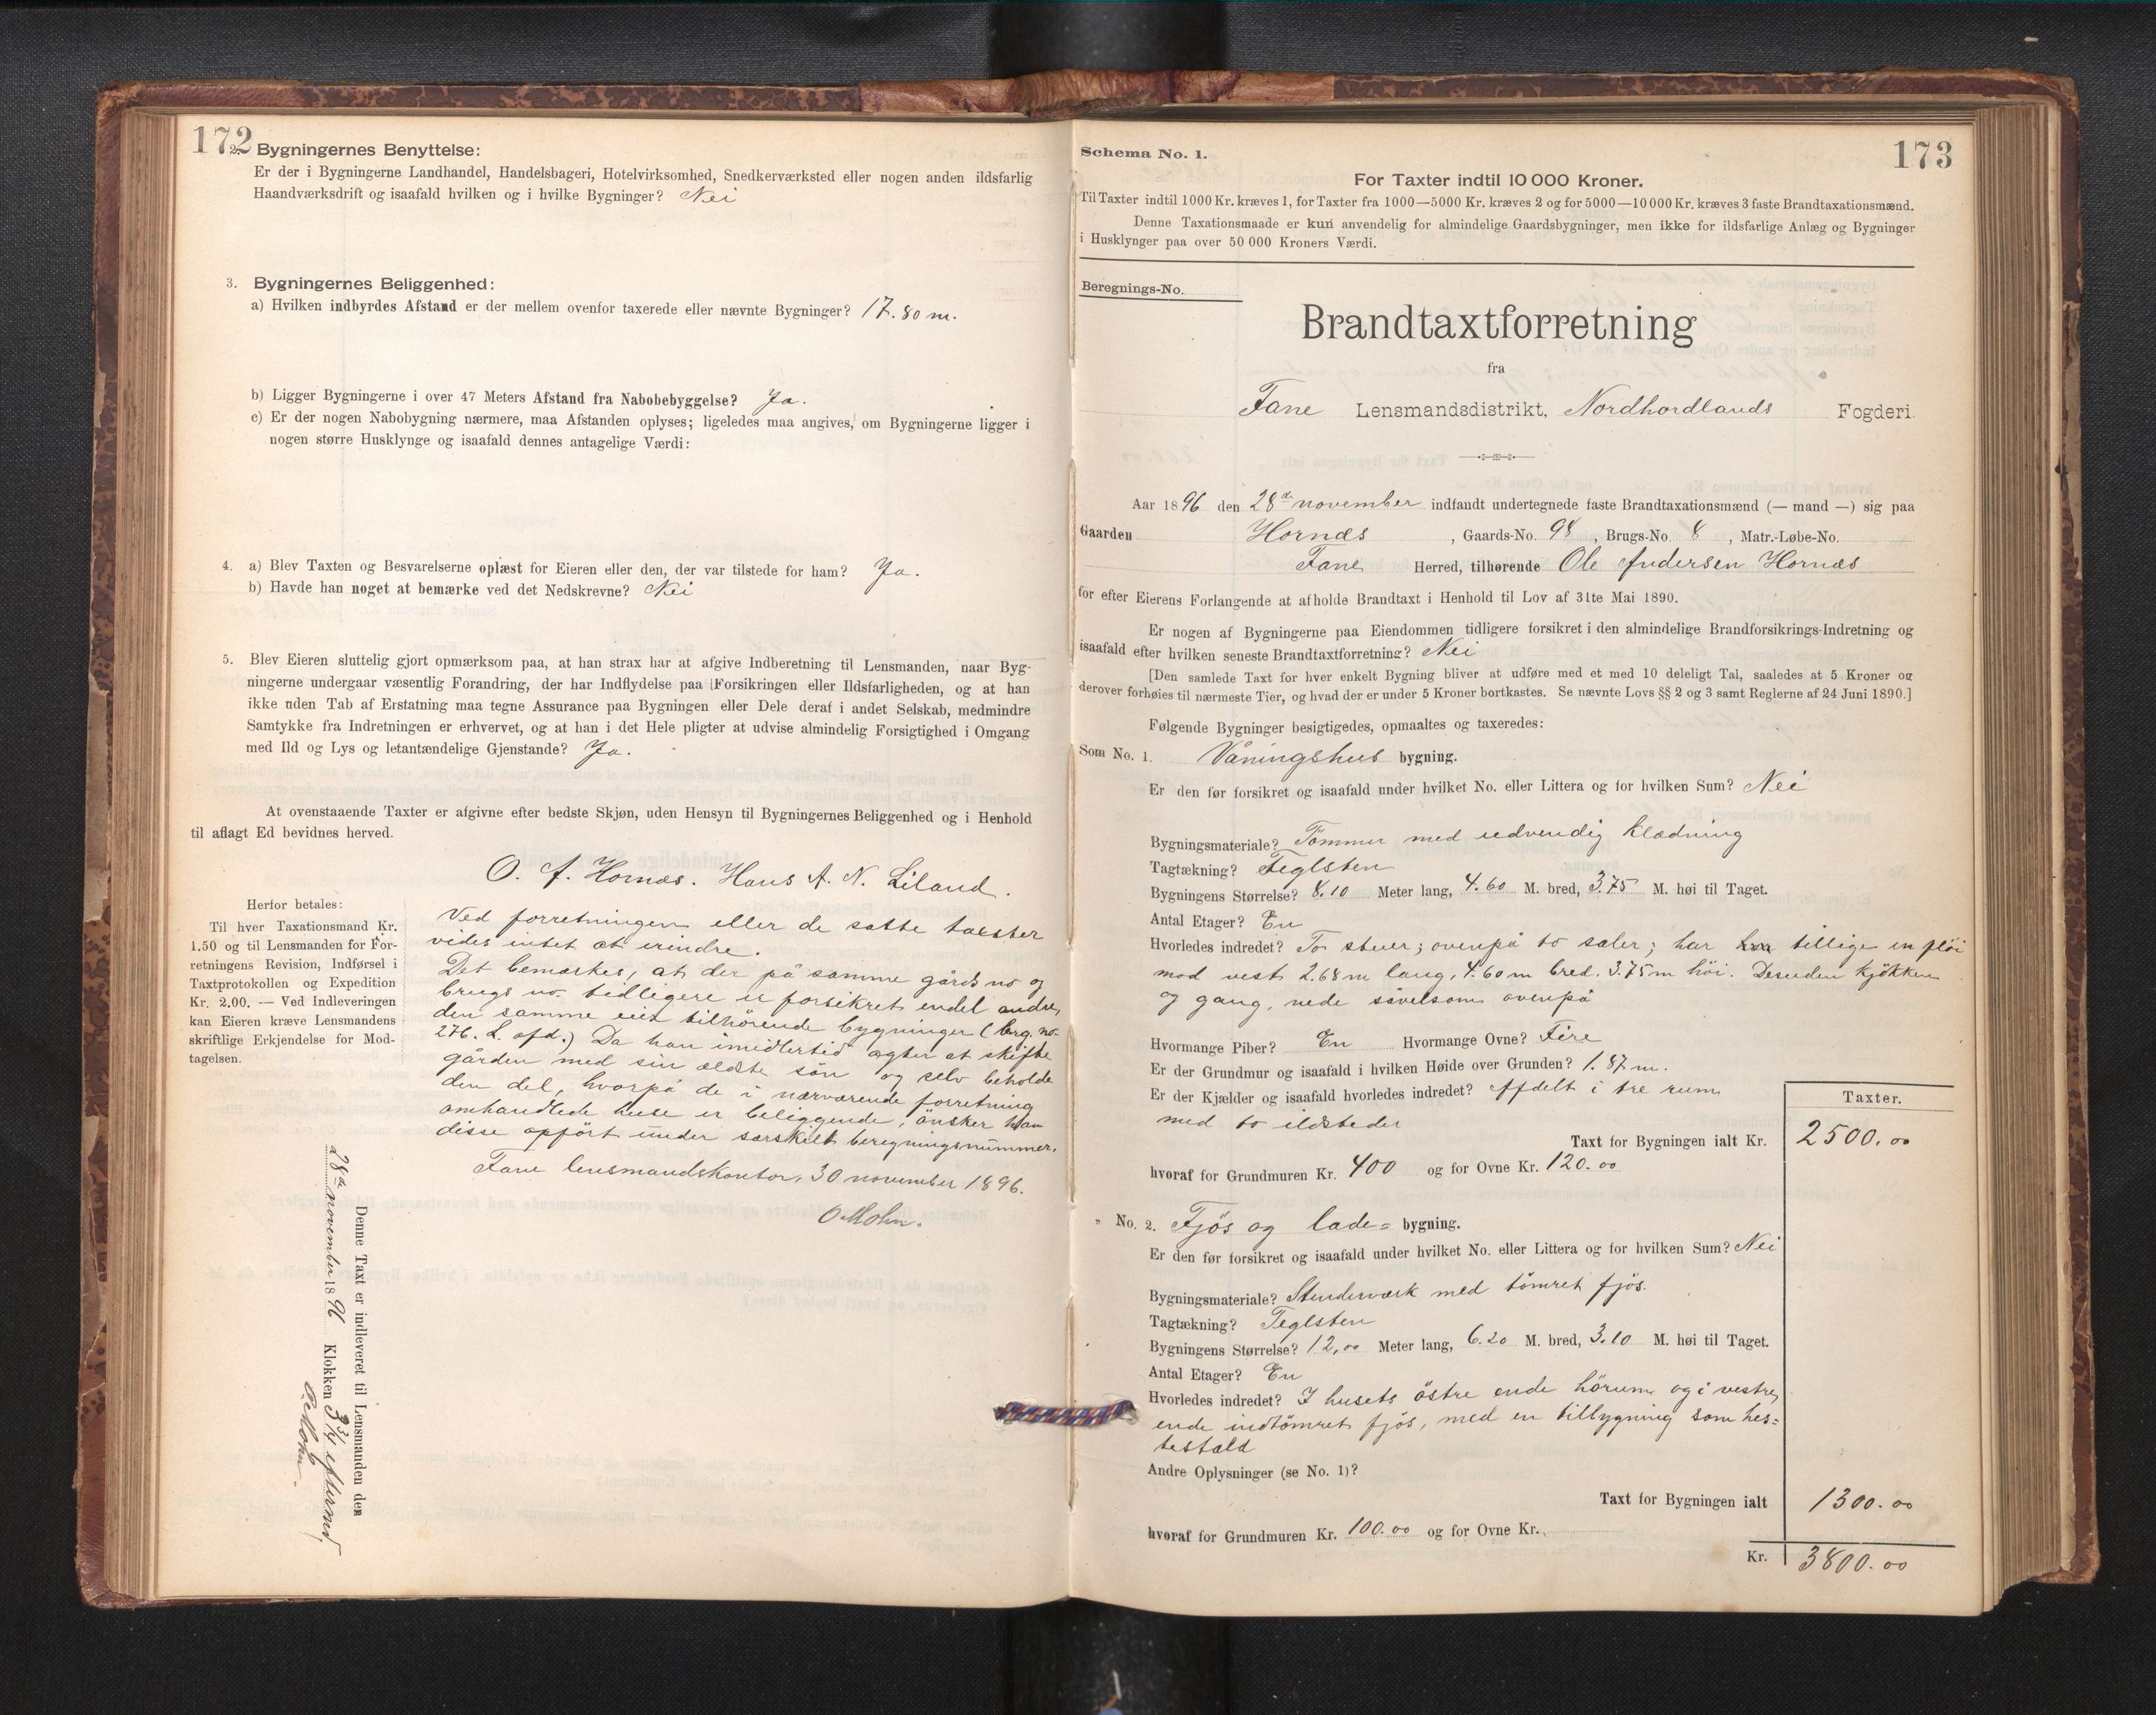 172
2. Bygningernes Benyttelse:
Er der i Bygningerne Landhandel, Handelsbageri, Hotelvirksomhed, Snedkerværksted eller nogen anden ildsfarlig
Haandværksdrift og isaafald hvilken og i hvilke Bygninger? Nei
3. Bygningernes Beliggenhed:
a) Hvilken indbyrdes Afstand er der mellem ovenfor taxerede eller nævnte Bygninger? 17.80 m.
b) Ligger Bygningerne i over 47 Meters Afstand fra Nabobebyggelse? Ja.
c) Er der nogen Nabobygning nærmere, maa Afstanden oplyses; ligeledes maa angives, om Bygningerne ligger i
nogen større Husklynge og isaafald dennes antagelige Værdi:
4. a) Blev Taxten og Besvarelserne oplæst for Eieren eller den, der var tilstede for ham? Ja.
b) Havde han noget at bemærke ved det Nedskrevne? Nei
5. Blev Eieren sluttelig gjort opmærksom paa, at han strax har at afgive Indberetning til Lensmanden, naar Byg-
ningerne undergaar væsentlig Forandring, der har Indflydelse paa Forsikringen eller Ildsfarligheden, og at han
ikke uden Tab af Erstatning maa tegne Assurance paa Bygningen eller Dele deraf i andet Selskab, medmindre
Samtykke fra Indretningen er erhvervet, og at han i det Hele pligter at udvise almindelig Forsigtighed i Omgang
med Ild og Lys og letantændelige Gjenstande? Ja.
At ovenstaaende Taxter er afgivne efter bedste Skjøn, uden Hensyn til Bygningernes Beliggenhed og i Henhold
til aflagt Ed bevidnes herved.
O. A. Hornæs. Hans A. N. Liland.
Herfor betales:
Til hver Taxationsmand Kr.
1.50 og til Lensmanden for For-
retningens Revision, Indførsel i
Taxtprotokollen og Expedition
Kr. 2.00. — Ved Indleveringen
kan Eieren kræve Lensmandens
skriftlige Erkjendelse for Mod-
tagelsen.
Ved forretningen eller de satte taxster
vides intet at erindre.
Det bemærkes, at der på samme gårds no og
brugs no. tidligere er forsikret endel andre,
den samme eier tilhörende bygninger (berg. no.
276. L. afd.) Da han imidlertid agter at skifte
gården med sin ældste sön og selv beholde
den del, hvorpå de i nærværende forretning
omhandlede huse er beliggende, önsker han
disse opfört under særskilt beregningsnummer.
Fane lensmandskontor, 30 november 1896.
O Mohn.
Denne Taxt er indleveret til Lensmanden den
28de november 1896 Klokken 3 3/4 eftermd.
O. Mohn.
173
Schema No. 1.
For Taxter indtil 10 000 Kroner.
Til Taxter indtil 1000 Kr. kræves 1, for Taxter fra 1000—5000 Kr. kræves 2 og for 5000—10 000 Kr. kræves 3 faste Brandtaxationsmænd.
Denne Taxationsmaade er kun anvendelig for almindelige Gaardsbygninger, men ikke for ildsfarlige Anlæg og Bygninger
i Husklynger paa over 50 000 Kroners Værdi.
Beregnings-No.
Brandtaxtforretning
fra
Fane Lensmandsdistrikt, Nordhordlands Fogderi.
Aar 1896 den 28de november indfandt undertegnede faste Brandtaxationsmænd (— mand —) sig paa
Gaarden Hornæs, Gaards-No. 98, Brugs-No. 8, Matr.-Løbe-No.
Fane Herred, tilhørende Ole Andersen Hornæs
for efter Eierens Forlangende at afholde Brandtaxt i Henhold til Lov af 31te Mai 1890.
Er nogen af Bygningerne paa Eiendommen tidligere forsikret i den almindelige Brandforsikrings-Indretning og
isaafald efter hvilken seneste Brandtaxtforretning? Nei
[Den samlede Taxt for hver enkelt Bygning bliver at udføre med et med 10 deleligt Tal, saaledes at 5 Kroner og
derover forhøies til nærmeste Tier, og hvad der er under 5 Kroner bortkastes. Se nævnte Lovs §§ 2 og 3 samt Reglerne af 24 Juni 1890.]
Følgende Bygninger besigtigedes, opmaaltes og taxeredes:
Som No. 1. Våningshus bygning.
Er den før forsikret og isaafald under hvilket No. eller Littera og for hvilken Sum? Nei
Bygningsmateriale? Tömmer med udvendig klædning
Tagtækning? Teglsten
Bygningens Størrelse? 8.10 Meter lang, 4.60 M. bred, 3.75 M. høi til Taget.
Antal Etager? En
Hvorledes indredet? To stuer; ovenpå to saler; har tillige en flöi
mod vest 2.68 m lang, 4.60 m bred, 3.75 m höi. Desuden kjökken
og gang, nede såvelsom ovenpå
Hvormange Piber? En Hvormange Ovne? Fire
Er der Grundmur og isaafald i hvilken Høide over Grunden? 1.87 m.
Er der Kjælder og isaafald hvorledes indredet? Afdelt i tre rum
med to ildsteder
Taxter.
Taxt for Bygningen ialt Kr. 2500.00
hvoraf for Grundmuren Kr. 400 og for Ovne Kr. 120.00
" No. 2. Fjös og lade- bygning.
Er den før forsikret og isaafald under hvilket No. eller Littera og for hvilken Sum? Nei
Bygningsmateriale? Stenderværk med tömret fjös.
Tagtækning? Teglsten
Bygningens Størrelse? 12,00 Meter lang, 6.20 M. bred, 3.10 M. høi til Taget.
Antal Etager? En
Hvorledes indredet? I husets östre ende hörum og i vestre
ende indtömret fjös, med en tilbygning som hes-
testald
Andre Oplysninger (se No. 1)?
Taxt for Bygningen ialt 1300.00
hvoraf for Grundmuren Kr. 100.00 og for Ovne Kr.
Kr. 3800.00